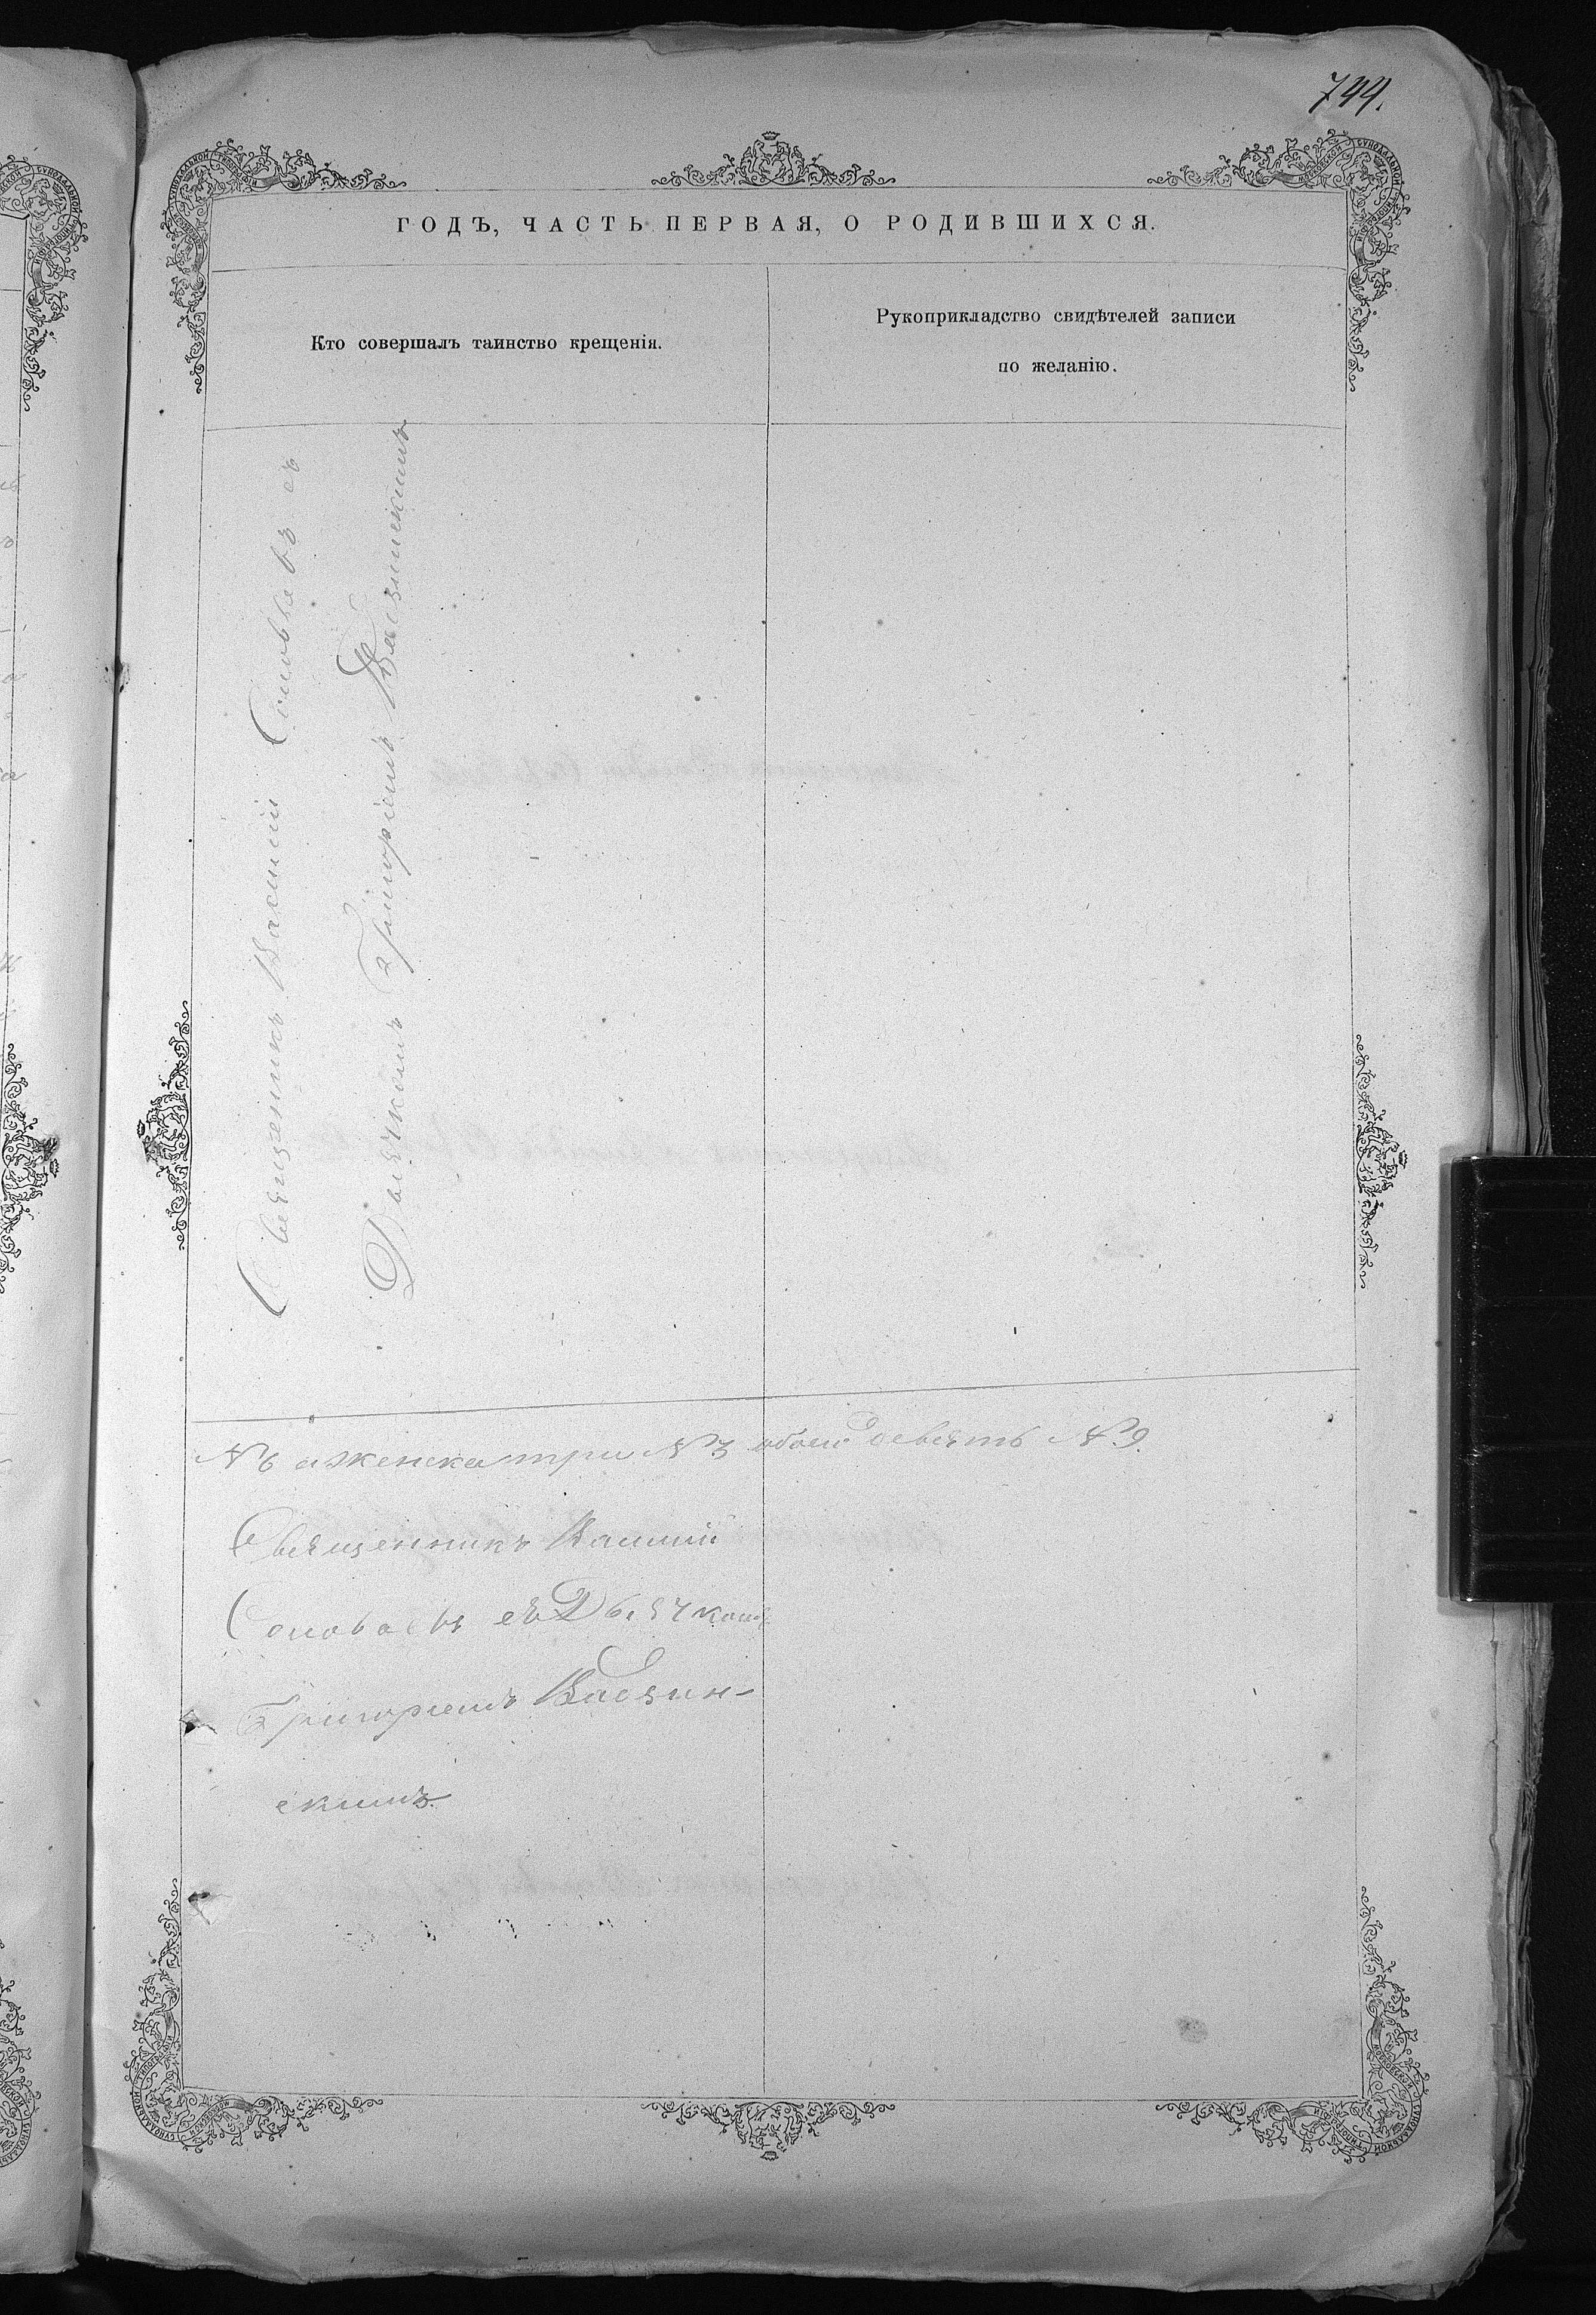 744.
ГОДЪ, ЧАСТЬ ПЕРВАЯ, О РОДИВШИХСЯ.
Кто совершалъ таинство крещенія.
Рукоприкладство свидѣтелей записи
по желанію.
Священникъ Василій Соловьевъ съ
Дьячкомъ Григоріемъ Казинскимъ
№ 6 а женска три № 3 обоего девять № 9.
Священникъ Василій
Соловьевъ съ Дьячкомъ
Григоріемъ Казин-
скимъ.